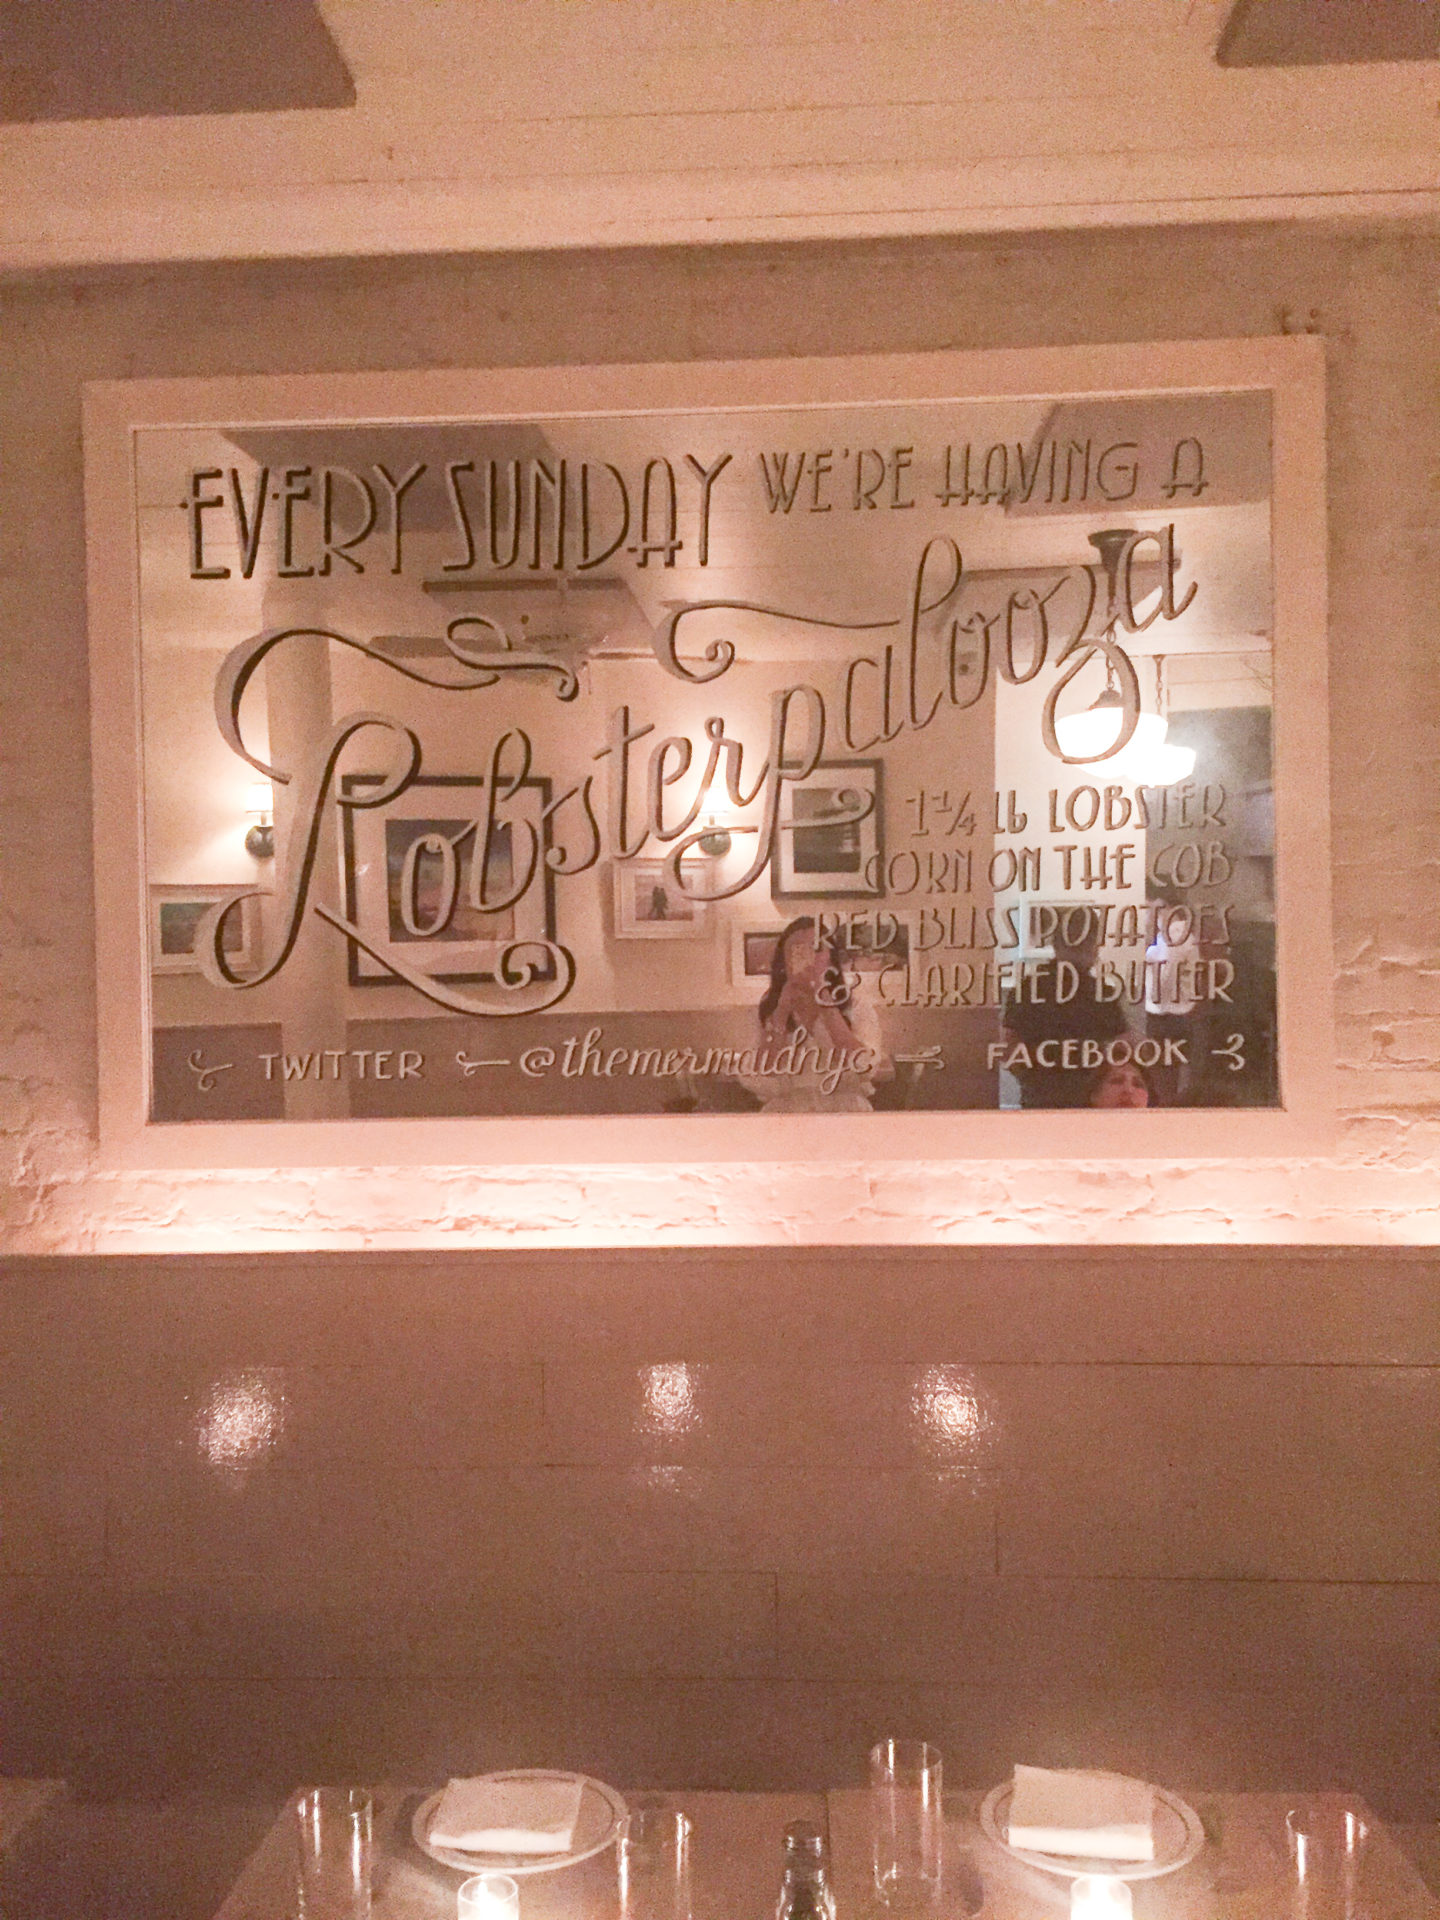 EVERY SUNDAY WE'RE HAVING A
Lobsterpalooza
1 1/4 lb LOBSTER
CORN ON THE COB
RED BLISS POTATOES
& CLARIFIED BUTTER
TWITTER @themermaidnyc FACEBOOK